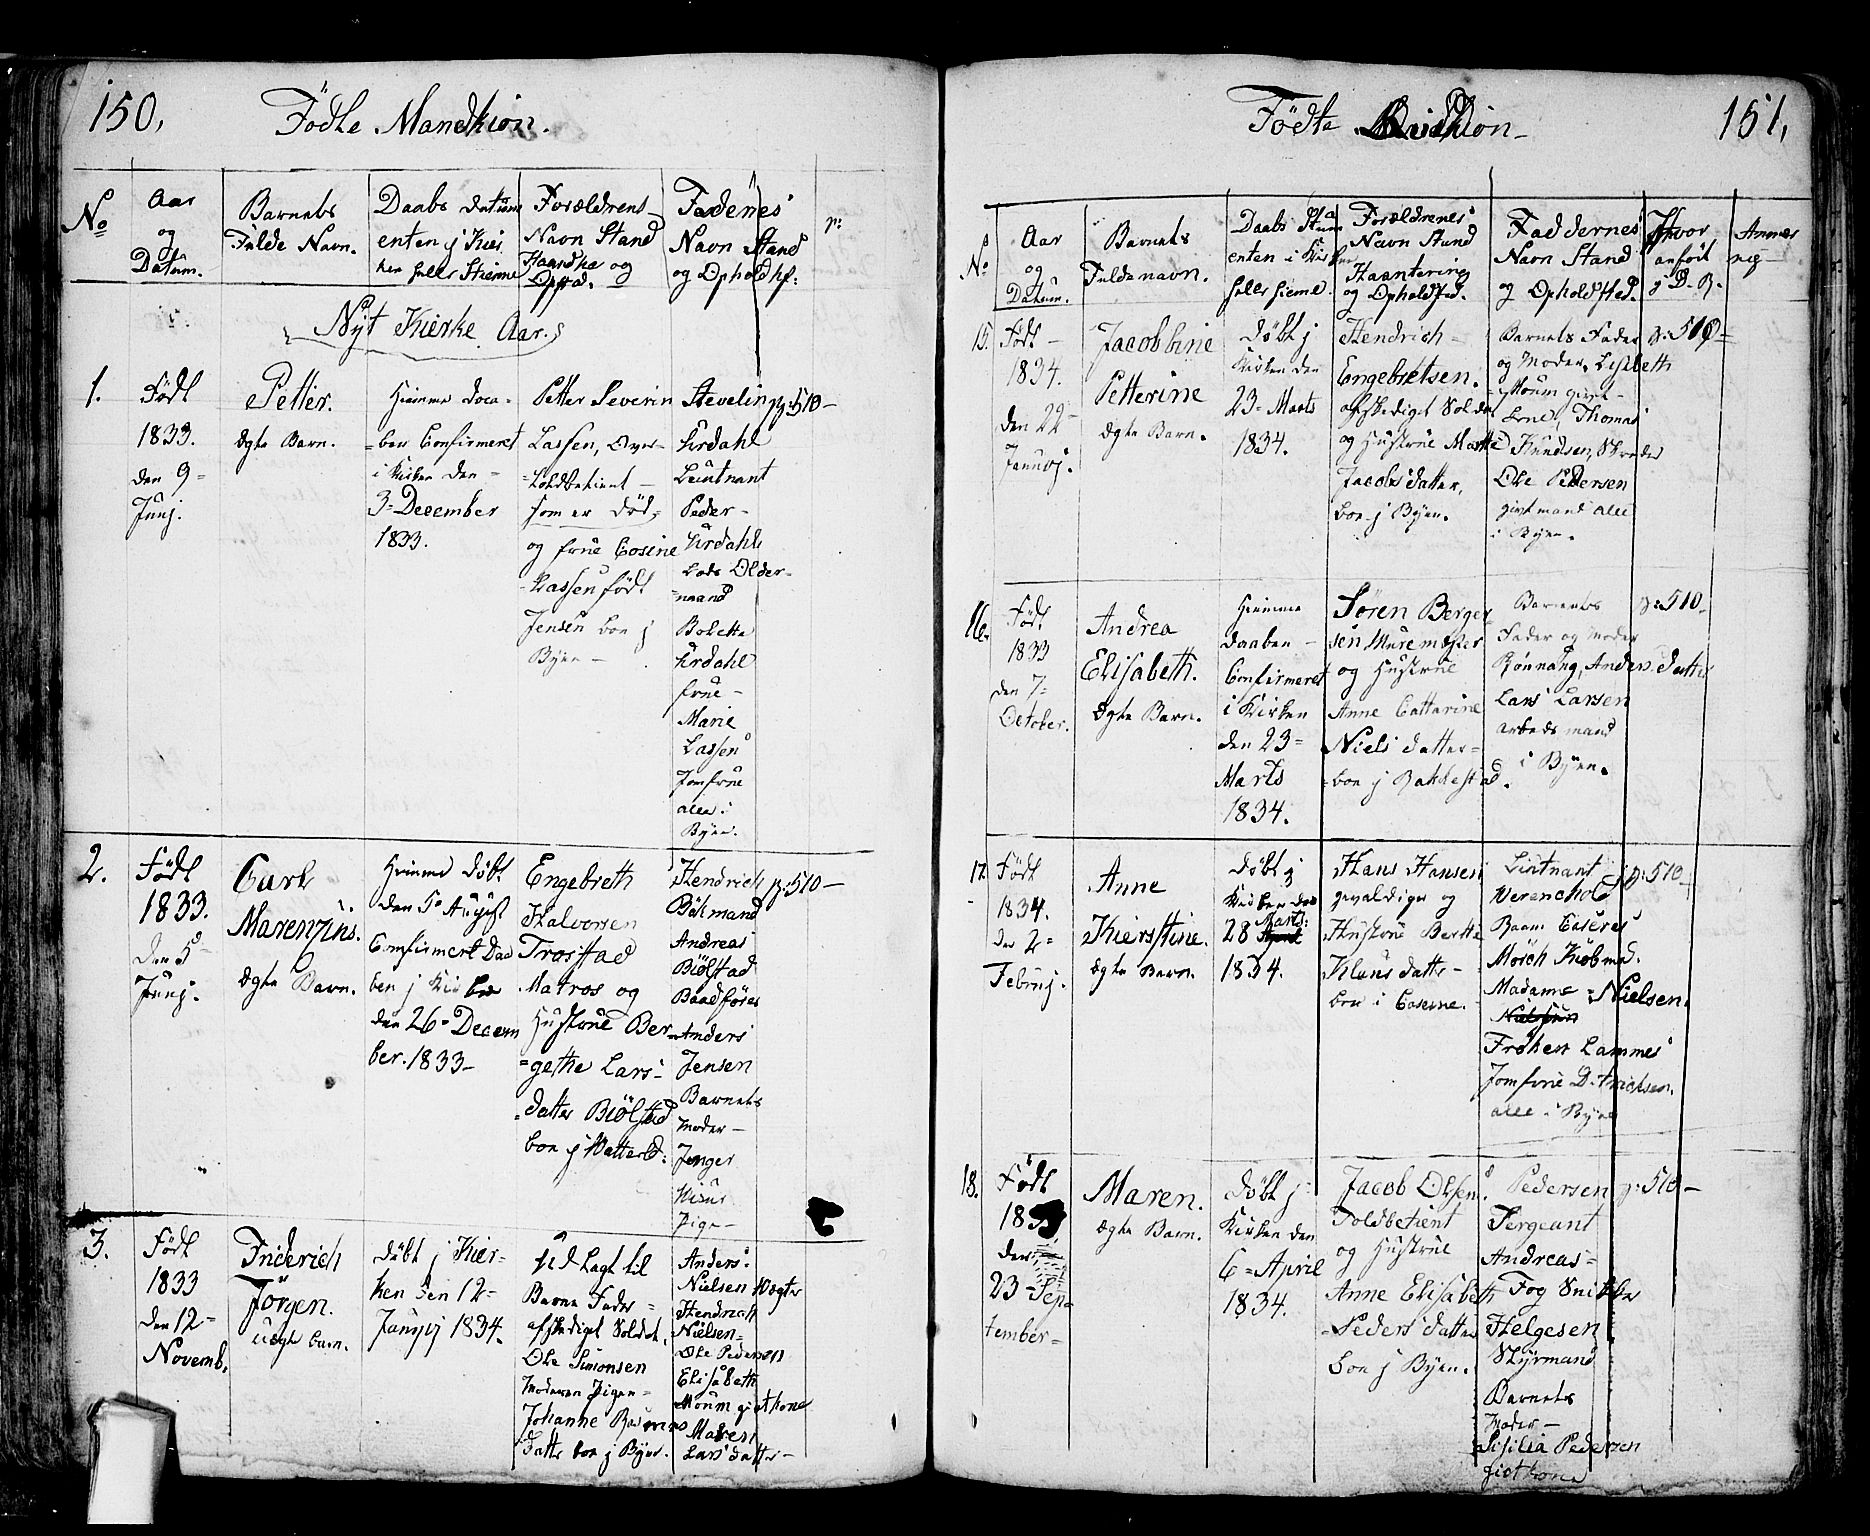 150,
Fødte Mandkiøn.
No
Aar
og
Datum.
Barnets
Fulde Navn.
Daabs Datum
enten j Kier
ken heller Hiemme
Forældrens
Navn Stand
Haandte og
Opstad.
Fadenes
Navn Stand
og Ophold
Nyt Kierke Aar.
1.
Født
1833.
den 9=
Junj.
Petter.
Ægte Barn.
Hiemme Døca=
ben Confirmeret
i Kirken den=
3=December
1833.
Petter Severin
Lassen, Over=
=toldbetient
som er død,
og frue Cosine
Lassen født
Jensen boe j
Byen=
Stevelin
Urdahl
Leutnant
Peder=
Urdahl
Lods Older=
=mand
Bolette
Urdahl
frue=
Marie
Lassen
Jomfrue
alle i
Byen.
p:510=
2.
Født
1833.
Den 5=
Junj.
Carl
Marenzius.
Ægte Barn.
Hiemme døbt
den 5= August
Confirmert Daa
ben j Kirken
den 26=Decem
ber. 1833=
Engebreth
Halvorsen
Trosstad
Matros og
Hustrue Ber=
=gethe Lars=
=datter Biølstad
boe j Watterld:
Hendrich
Bökmand
Andreas
Biølstad
Baadfører
Anders
Jensen
Barnets
Moder=
Jnger
Pige=
p:510=
3.
Født
1833
den 12=
Novemb.
Friderich
Jörgen.
Uægte barn.
døbt j Kier=
ken den 12=
Januarj 1834.
Udlagt til
Barne Fader=
afskediget Soldat,
Ole Simonsen
Moderen Pigen=
Johanne Rasmus
datter boe j Byen.
Anders
Nielsen Vægter
Hendrich
Nielsen=
Ole Pedersen
Elisabeth
Moum givt kone
Maren
Larsdatter=
Födte Quidkiön=
151,
No
Aar
og
Datum.
Barnets
Fuldenavn.
Daabs Datum
enten i Kirken
heller hieme.
Forældrenes
Navn Stand
Haantering
og Opholdsted.
Faddernes
Navn Stand
og Opholdsted.
Hvor
anført
j D. R.
Anmær
=
15.
Født=
1834.
den 22=
Januoj.
Jacobbine
Petterine
Ægte Barn.
Döbt j
Kirken den
23=Marts
1834.
Hendrich=
Engebretsen.
afskediget Soldat
og Hustrue Marthe
Jacobsdatter,
boe j Byen.
Barnets Fader
og Moder, Lisebeth
Moum givt
kone, Thomas
Knudsen, Skreder
Ole Pedersen
givt mand alle
i Byen.
p:510=
16.
Född
1833
den 7=
October.
Andrea
Elisabeth.
Ægte Barn.
Hiemme
daaben=
Confirmeret
i Kirken
den 23=
Marts
1834.
Søren Berger
sen Muremester
og Hustrue
Anne Cattarine
Niels datter=
=boe j Bakkestad.
Barnets
Fader og Moder
Rönnaug, Anders datter
Lars Larsen
arbeds mand
i Byen.
p:510.
17.
Født
1834.
den 2=
Februj.
Anne
Kierstine.
Ægte Barn.
Döbt j
Kirken den
28 Marts:
1834.
Hans Hansen
gevaldiger og
Hustrue Berthe
Klausdatter=
boe i Caserne.
Liutnant
Werenchold
Mörch Kiöbmd.
Madame=Nielsen.
Nielsen
Frøken Lammers
Jomfrue Ditrichsen.
alle i Byen
p:510=
18.
Født
den
23=Sep=
tember=
Maren.
Ægte Barn.
Döbt j
Kirken den
6=April
1834.
Jacob Olsen.
Toldbetient
og Hustrue
Anne Elisabeth
=Pedersdatter
boe j Byen.
Pedersen
Sergeant
Andreas=
Fog Snitker
Helgesen
Styrmand
Barnets
Moder=
Sisilia Pedersen
p:510=